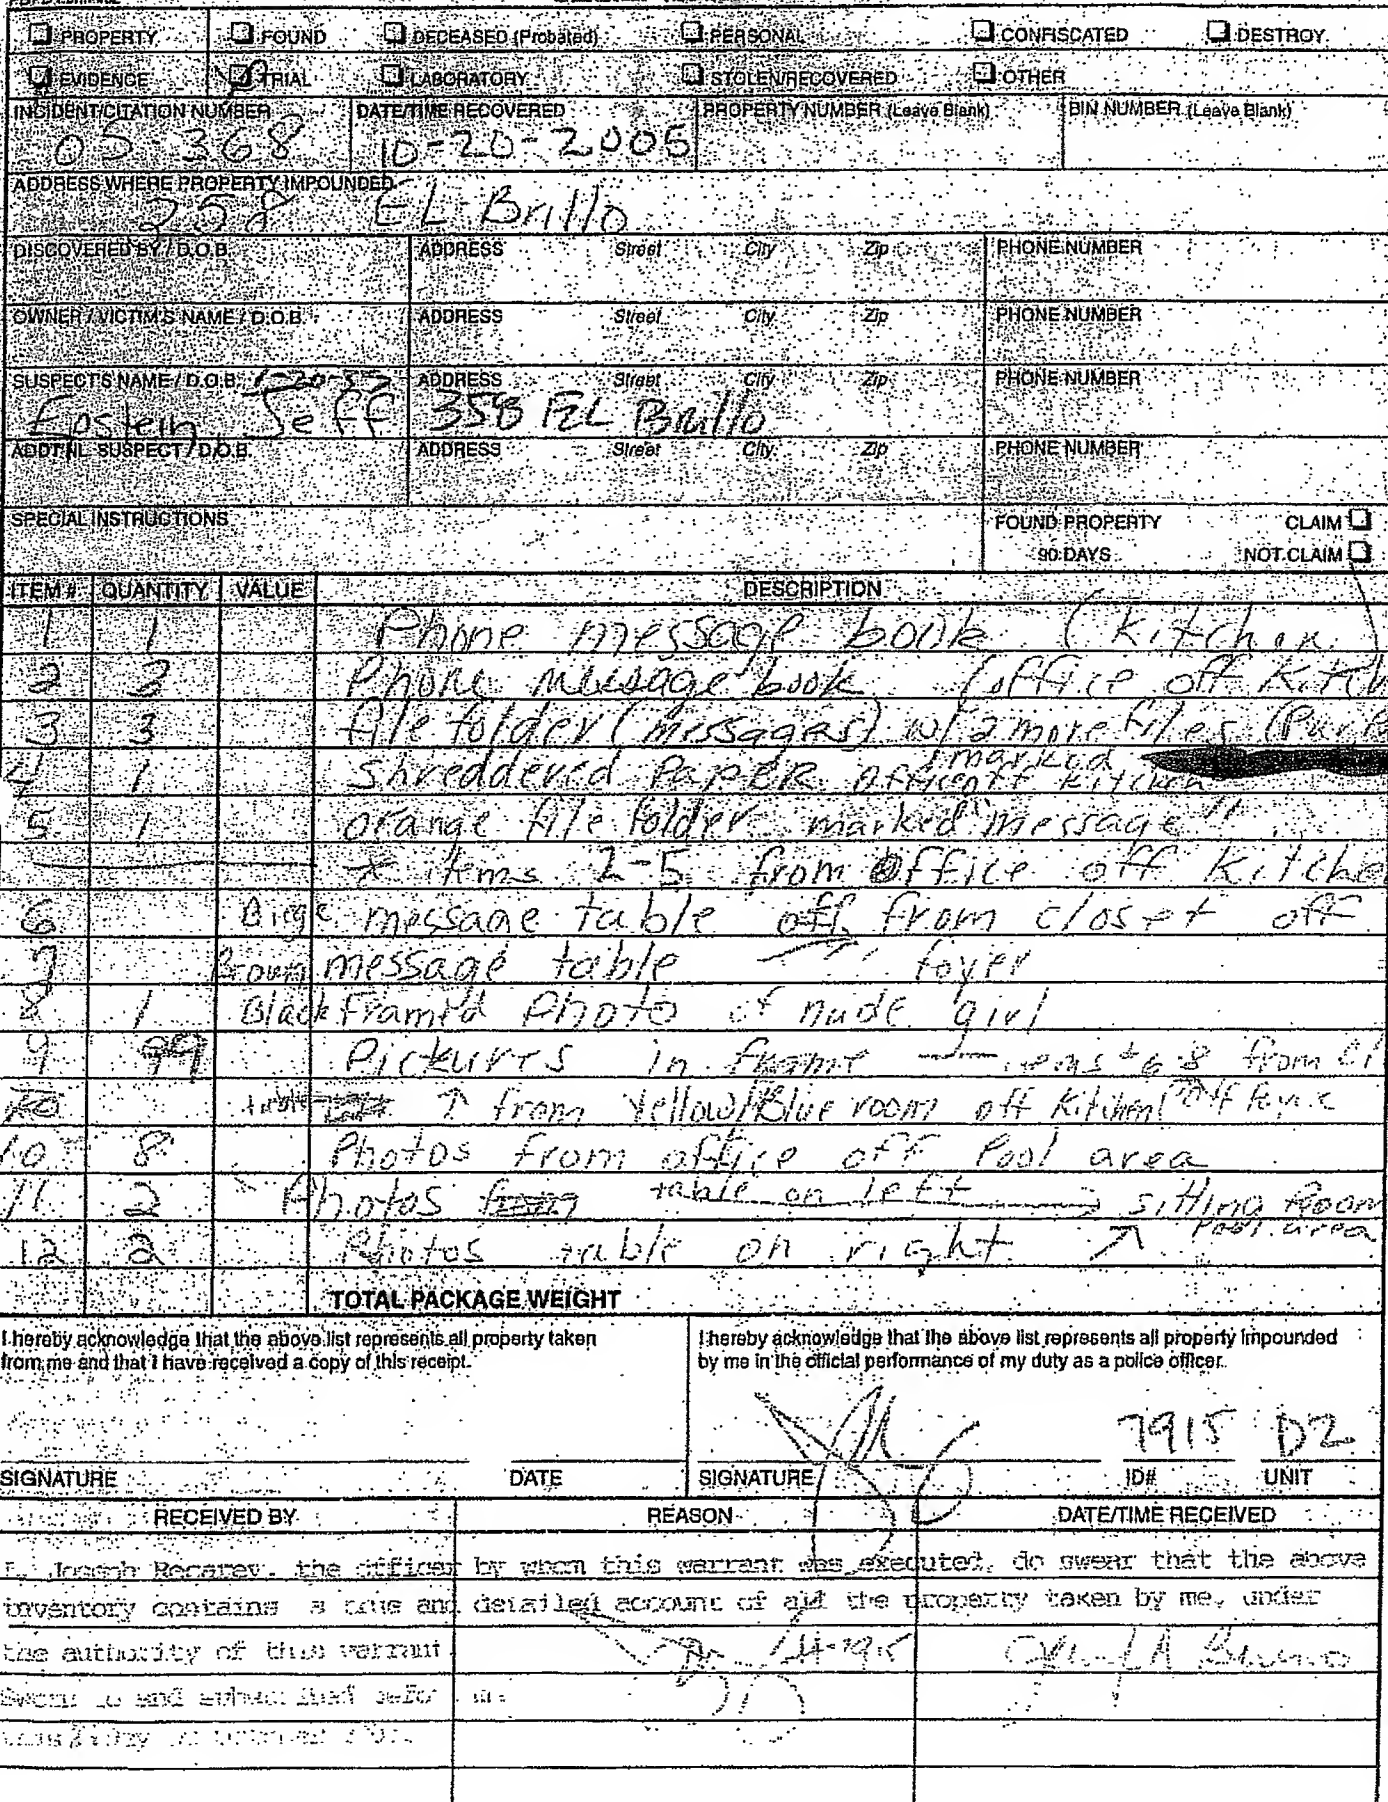 PROPERTY FOUND DECEASED (Probated) PERSONAL CONFISCATED DESTROY
EVIDENCE TRIAL LABORATORY STOLEN/RECOVERED OTHER
INCIDENT/CITATION NUMBER DATE/TIME RECOVERED PROPERTY NUMBER (Leave Blank) BIN NUMBER (Leave Blank)
05-368 10-20-2005
ADDRESS WHERE PROPERTY IMPOUNDED
258 EL Brillo
DISCOVERED BY / D.O.B. ADDRESS Street City Zip PHONE NUMBER
OWNER / VICTIM'S NAME / D.O.B. ADDRESS Street City Zip PHONE NUMBER
SUSPECT'S NAME / D.O.B. ADDRESS Street City Zip PHONE NUMBER
Epstein, Jeff 358 EL Brillo
ADDT'NL SUSPECT / D.O.B. ADDRESS Street City Zip PHONE NUMBER
SPECIAL INSTRUCTIONS FOUND PROPERTY CLAIM
90 DAYS NOT CLAIM
ITEM # QUANTITY VALUE DESCRIPTION
1 1 Phone message book (Kitchen
2 2 Phone message book (office off Kitch
3 3 file folder (messages) w/ 2 more files
marked
4 1 Shreddered PAPER office off kitchen
5 1 orange file folder marked "message"
* items 2-5 from office off Kitche
6 Biege message table off from closet off
7 Brown message table foyer
8 1 Black Framed Photo of nude girl
9 99 Pickures in frame 6-8 from
↑ from Yellow/Blue room off Kitchen
10 8 Photos from office off Pool area
11 2 Photos from table on left → sitting Room
Pool area
12 2 Photos table on right ↗
TOTAL PACKAGE WEIGHT
I hereby acknowledge that the above list represents all property taken
from me and that I have received a copy of this receipt.
I hereby acknowledge that the above list represents all property impounded
by me in the official performance of my duty as a police officer.
7915 D2
SIGNATURE DATE SIGNATURE ID# UNIT
RECEIVED BY REASON DATE/TIME RECEIVED
I, Joseph Recarey, the officer by whom this warrant was executed, do swear that the above
inventory contains a true and detailed account of all the property taken by me, under
the authority of this warrant.
Sworn to and subscribed before me